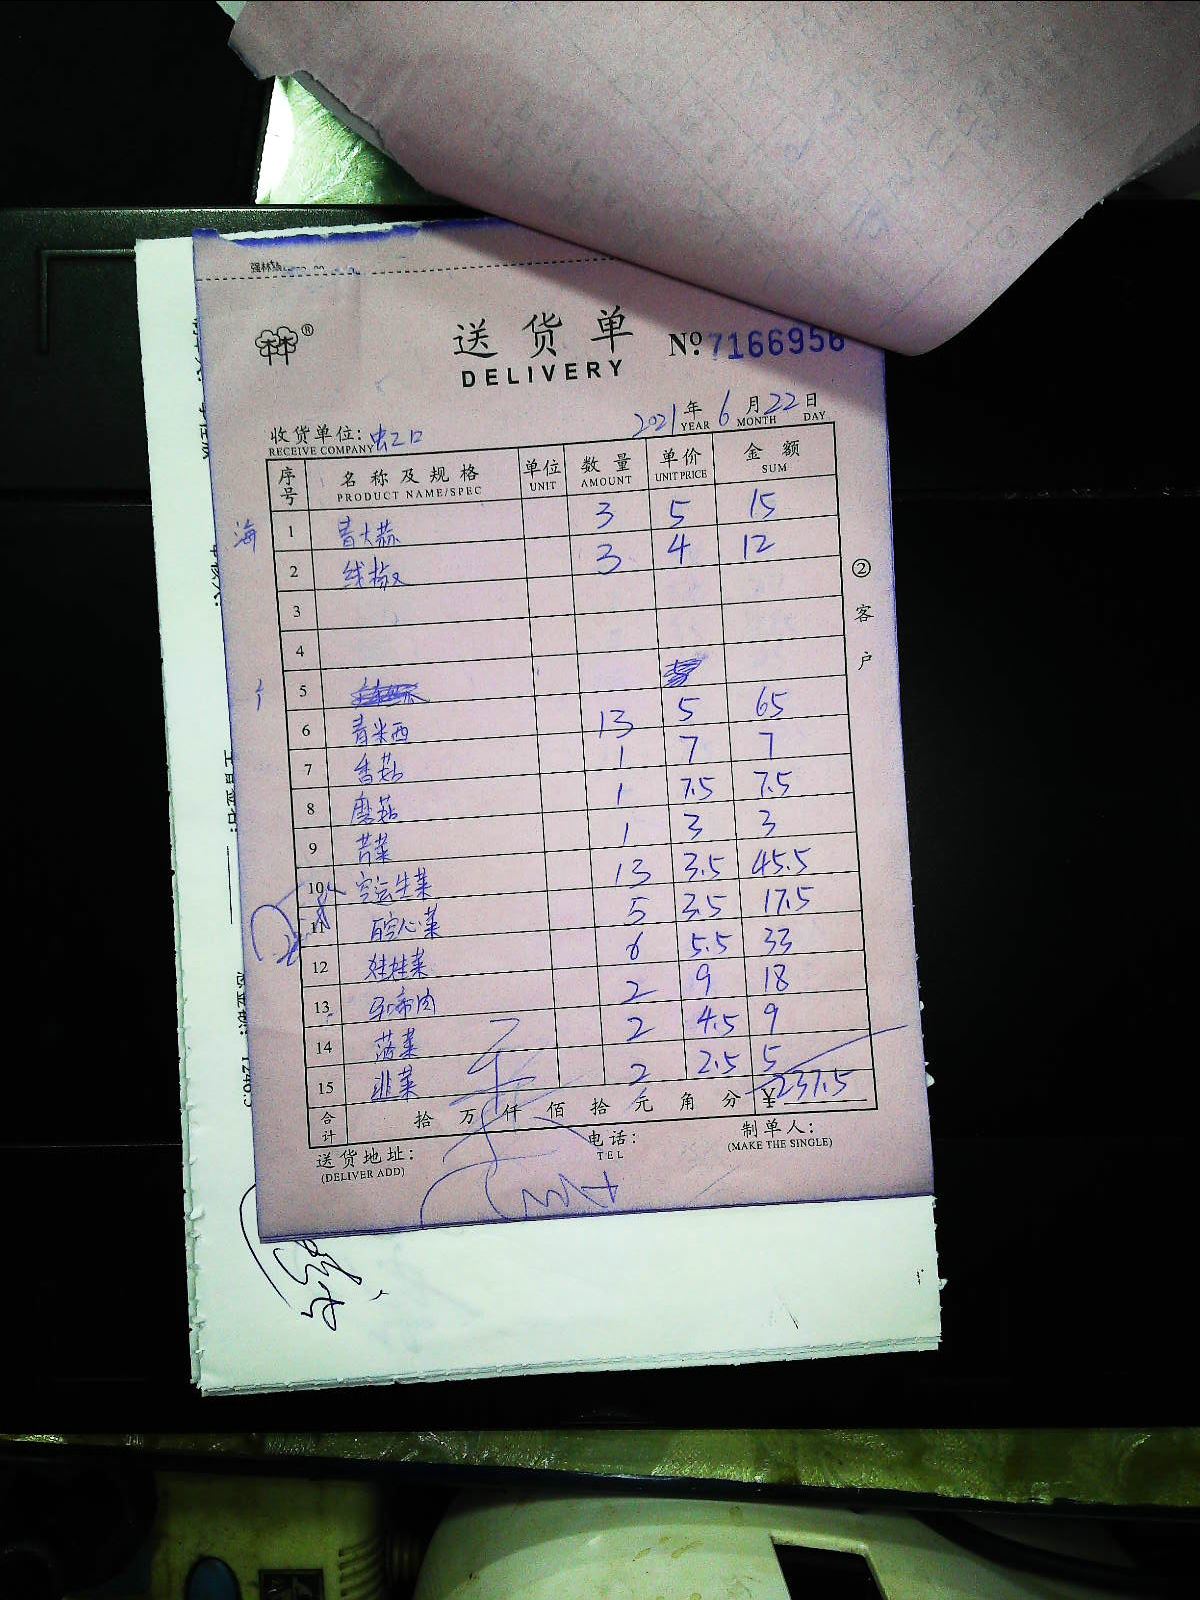 送货单
DELIVERY
No. 7166956
2021年 6月 22日
YEAR MONTH DAY
收货单位: 虹口
RECEIVE COMPANY
序号 名称及规格 单位 数量 单价 金额
PRODUCT NAME/SPEC UNIT AMOUNT UNIT PRICE SUM
海
1 青大蒜 3 5 15
2 线椒 3 4 12
3
4
5
6 青米西 13 5 65
7 香菇 1 7 7
8 磨菇 1 7.5 7.5
9 苦菜 1 3 3
10 空运生菜 13 3.5 45.5
11 百空心菜 5 3.5 17.5
12 娃娃菜 6 5.5 33
13 2 9 18
14 菠菜 2 4.5 9
15 韭菜 2 2.5 5
合计 拾 万 仟 佰 拾 元 角 分 ¥237.5
送货地址: 电话: 制单人:
(DELIVER ADD) TEL (MAKE THE SINGLE)
②客户